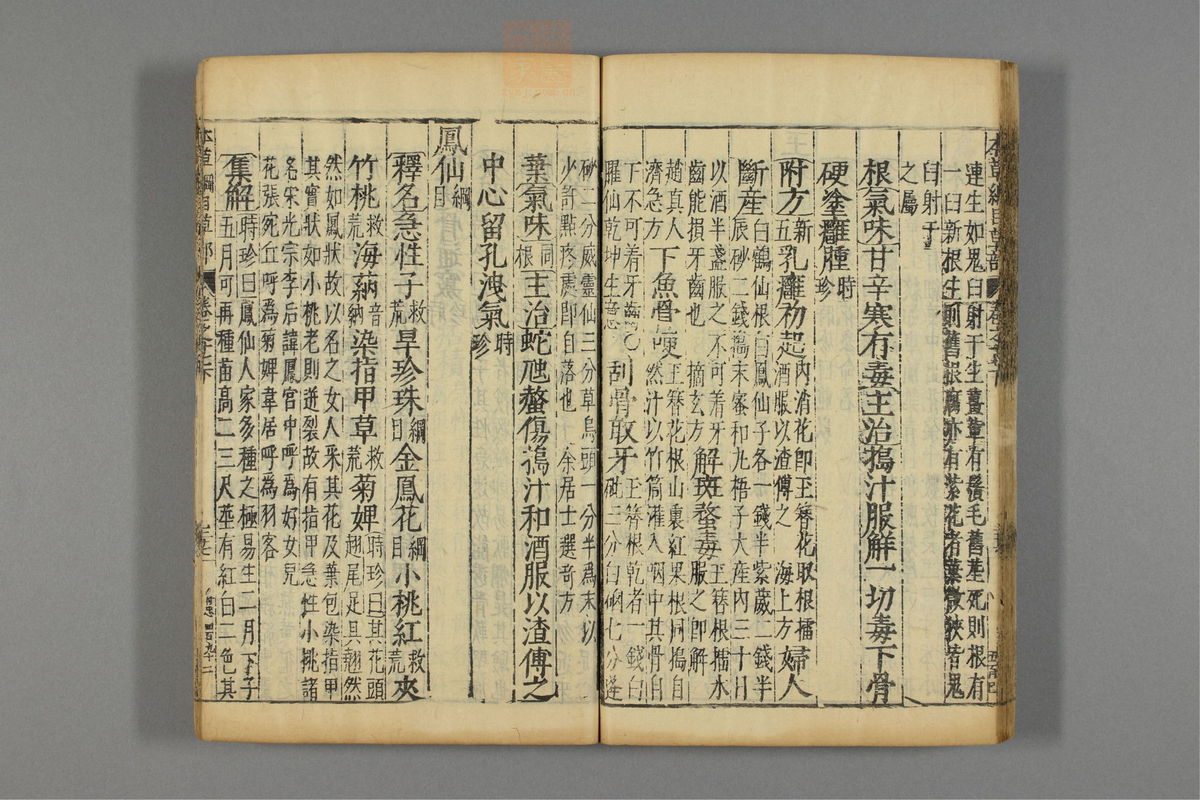 本草綱目草部 卷之十七
連生如鬼臼射干生薑輩有鬚毛舊莖死則根有
一臼新根生則舊根腐亦有紫花者葉微狹皆鬼
臼射干
之屬
根氣味甘辛寒有毒主治搗汁服解一切毒下骨
硬塗癰腫時珍
附方新五乳癰初起內消花即玉簪花取根擂酒服以渣傅之 海上方婦人
斷産白鶴仙根白鳳仙子各一錢半紫葳二錢半辰砂二錢搗末蜜和丸梧子大産內三十日
以酒半盞服之不可着牙齒能損牙齒也 摘玄方解斑蝥毒玉簪根擂水服之即解
趙真人濟急方下魚骨哽玉簪花根山裏紅果根同搗自然汁以竹筒灌入咽中其骨自
下不可着牙齒 臞仙乾坤生意刮骨取牙玉簪根乾者一錢白砒三分白硇七分蓬
砂二分威靈仙三分草烏頭一分半爲末以
少許點疼處即自落也 余居士選奇方
葉氣味同根主治蛇虺螫傷搗汁和酒服以渣傅之
中心留孔洩氣時珍
鳳仙綱目
釋名急性子救荒旱珍珠綱目金鳳花綱目小桃紅救荒夾
竹桃救荒海蒳音納染指甲草救荒菊婢時珍曰其花頭翅尾足具翹然
然如鳳狀故以名之女人采其花及葉包染指甲
其實狀如小桃老則迸裂故有指甲急性小桃諸
名宋光宗李后諱鳳宮中呼為好女兒
花張宛丘呼為菊婢韋居呼為羽客
集解時珍曰鳳仙人家多種之極易生二月下子
五月可再種苗高二三尺莖有紅白二色其
本草綱目草部 卷之十七